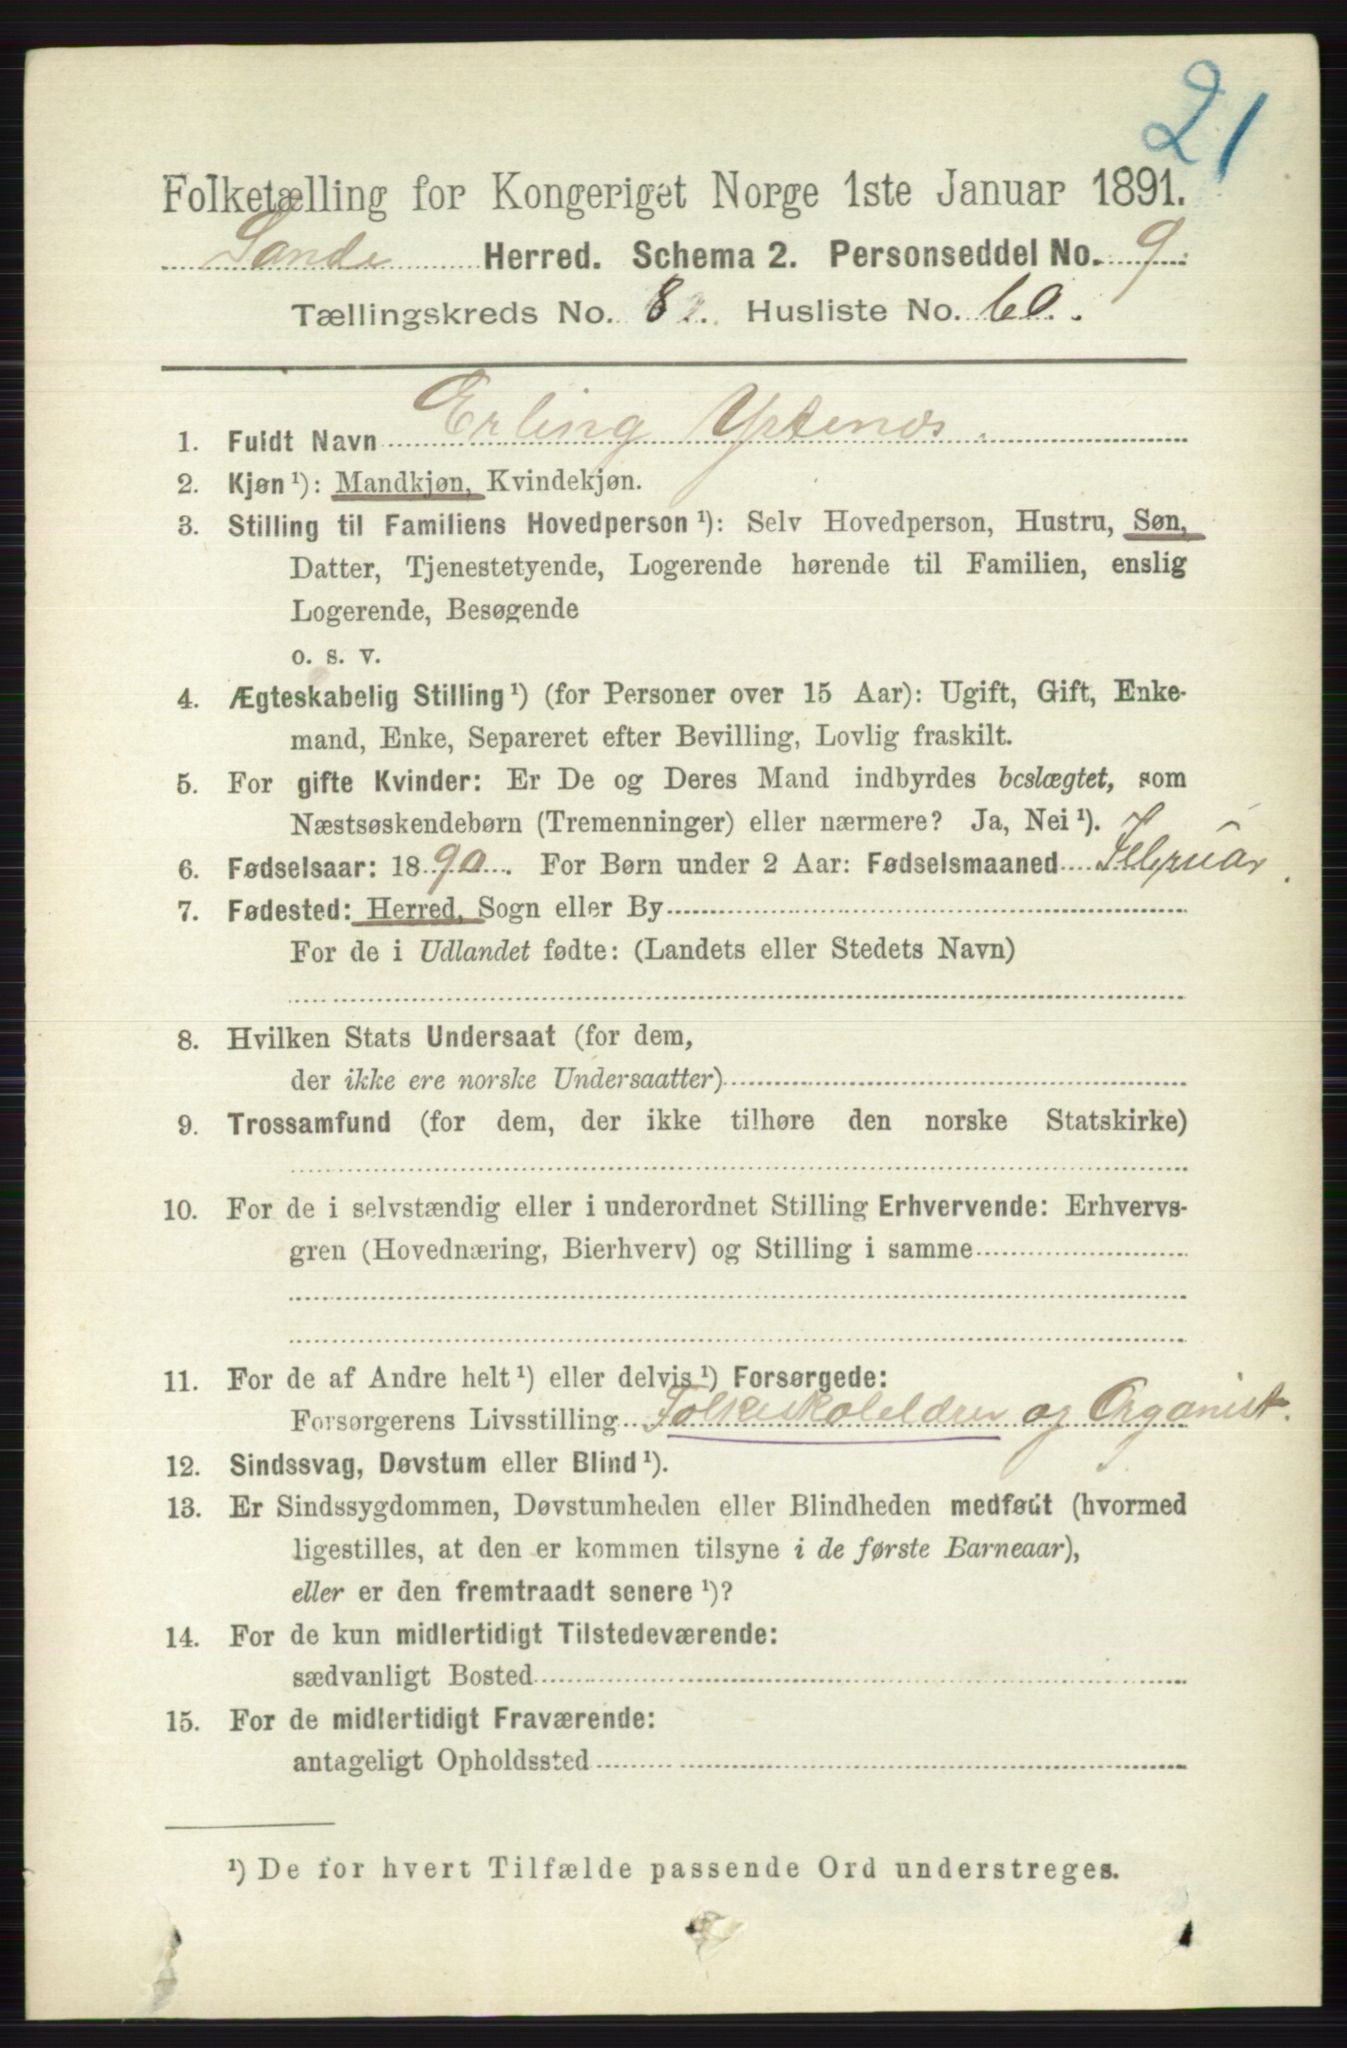 21
Folketælling for Kongeriget Norge 1ste Januar 1891.
Sande Herred. Schema 2. Personseddel No. 9
Tællingskreds No. 8. Husliste No. 60.
1. Fuldt Navn Erling
2. Kjøn¹): Mandkjøn, Kvindekjøn.
3. Stilling til Familiens Hovedperson¹): Selv Hovedperson, Hustru, Søn,
Datter, Tjenestetyende, Logerende hørende til Familien, enslig
Logerende, Besøgende
o. s. v.
4. Ægteskabelig Stilling¹) (for Personer over 15 Aar): Ugift, Gift, Enke-
mand, Enke, Separeret efter Bevilling, Lovlig fraskilt.
5. For gifte Kvinder: Er De og Deres Mand indbyrdes beslægtet, som
Næstsøskendebørn (Tremenninger) eller nærmere? Ja, Nei¹).
6. Fødselsaar: 1890. For Børn under 2 Aar: Fødselsmaaned Februar.
7. Fødested: Herred, Sogn eller By
For de i Udlandet fødte: (Landets eller Stedets Navn)
8. Hvilken Stats Undersaat (for dem,
der ikke ere norske Undersaatter)
9. Trossamfund (for dem, der ikke tilhøre den norske Statskirke)
10. For de i selvstændig eller i underordnet Stilling Erhvervende: Erhvervs-
gren (Hovednæring, Bierhverv) og Stilling i samme
11. For de af Andre helt¹) eller delvis¹) Forsørgede:
Forsørgerens Livsstilling Folkeskolelærer og Organist.
12. Sindssvag, Døvstum eller Blind¹).
13. Er Sindssygdommen, Døvstumheden eller Blindheden medfødt (hvormed
ligestilles, at den er kommen tilsyne i de første Barneaar),
eller er den fremtraadt senere¹)?
14. For de kun midlertidigt Tilstedeværende:
sædvanligt Bosted
15. For de midlertidigt Fraværende:
antageligt Opholdssted
¹) De for hvert Tilfælde passende Ord understreges.